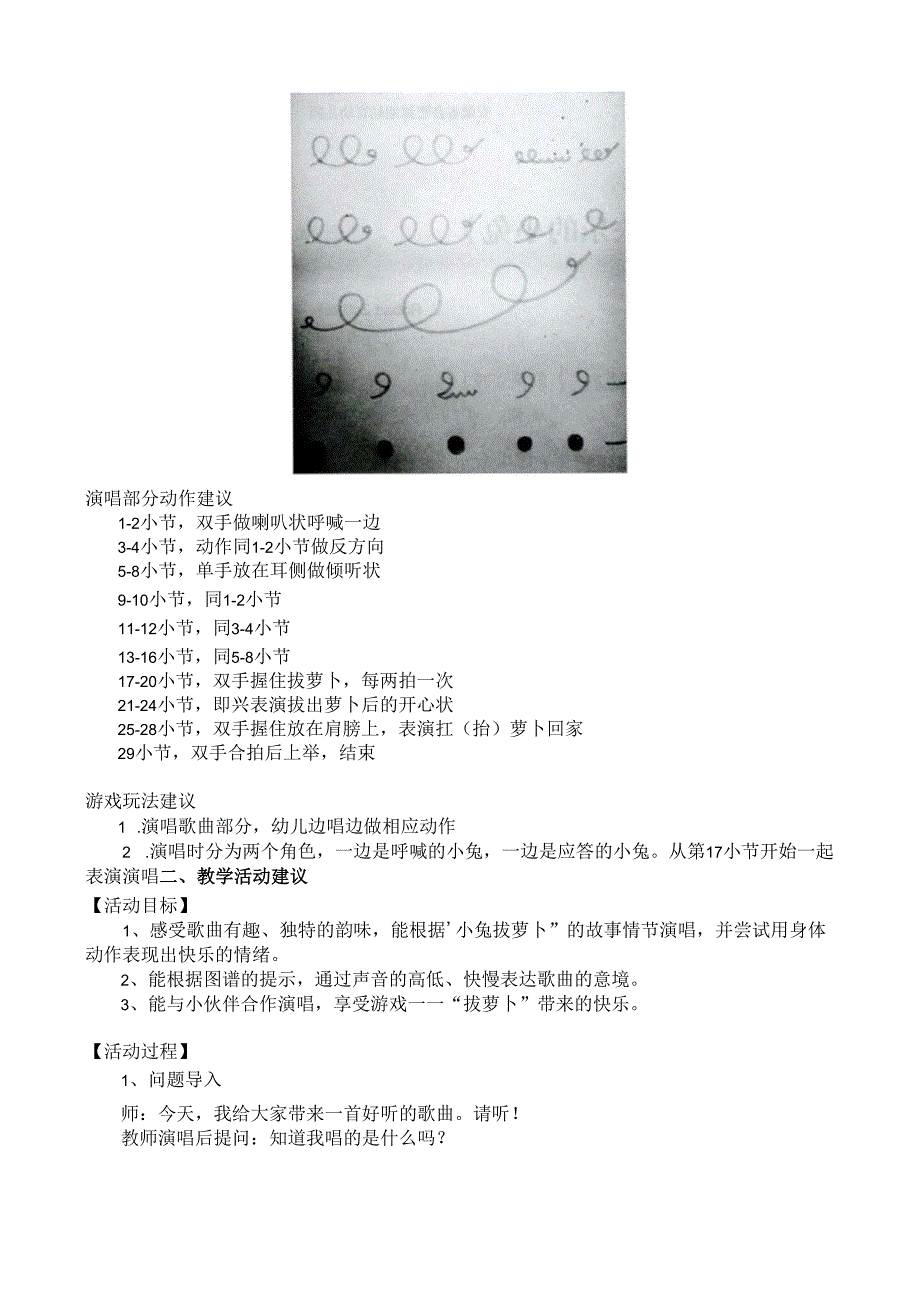 演唱部分动作建议
1-2小节，双手做喇叭状呼喊一边
3-4小节，动作同1-2小节做反方向
5-8小节，单手放在耳侧做倾听状
9-10小节，同1-2小节
11-12小节，同3-4小节
13-16小节，同5-8小节
17-20小节，双手握住拔萝卜，每两拍一次
21-24小节，即兴表演拔出萝卜后的开心状
25-28小节，双手握住放在肩膀上，表演扛（抬）萝卜回家
29小节，双手合拍后上举，结束
游戏玩法建议
1 .演唱歌曲部分，幼儿边唱边做相应动作
2 .演唱时分为两个角色，一边是呼喊的小兔，一边是应答的小兔。从第17小节开始一起
表演演唱二、教学活动建议
【活动目标】
1、感受歌曲有趣、独特的韵味，能根据'小兔拔萝卜”的故事情节演唱，并尝试用身体
动作表现出快乐的情绪。
2、能根据图谱的提示，通过声音的高低、快慢表达歌曲的意境。
3、能与小伙伴合作演唱，享受游戏一一“拔萝卜”带来的快乐。
【活动过程】
1、问题导入
师：今天，我给大家带来一首好听的歌曲。请听！
教师演唱后提问：知道我唱的是什么吗？